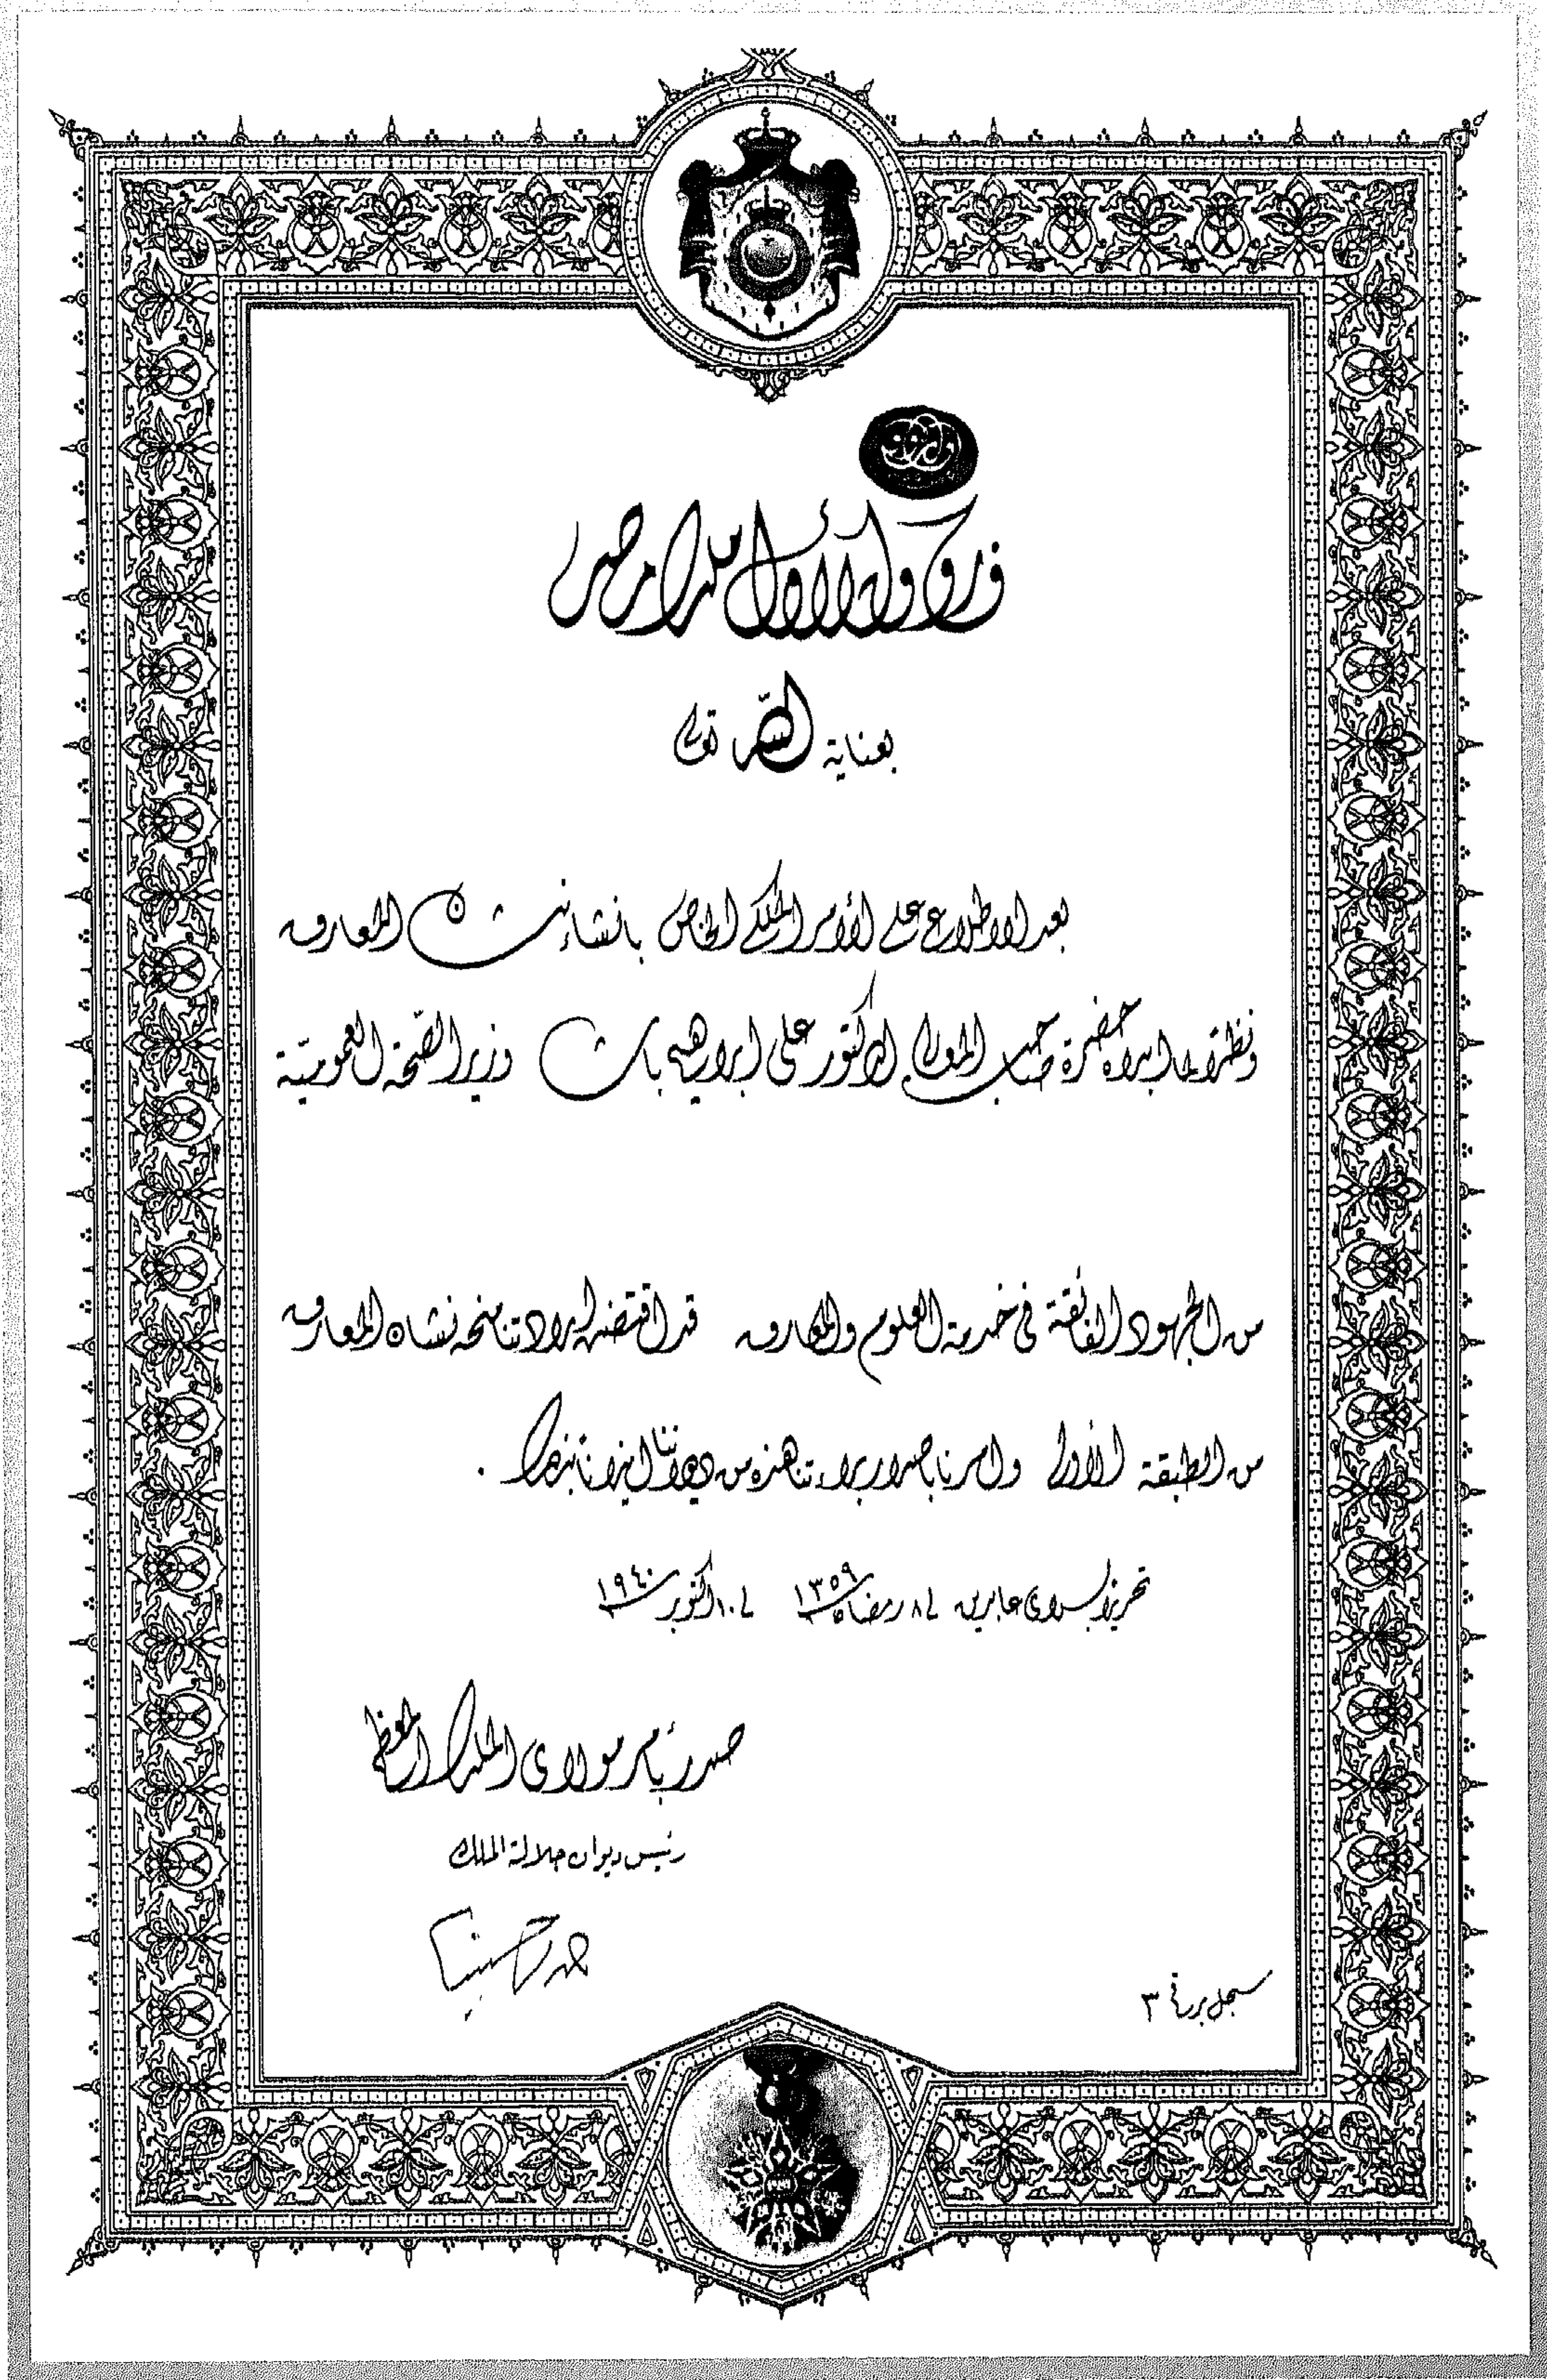 فاروق الأول ملك مصر
بعناية الله تعالى
بعد الاطلاع على الأمر الملكي الخاص بإنشاء نشان المعارف
ونظرًا لما أبداه حضرة صاحب المعالي الدكتور علي إبراهيم باشا وزير الصحة العمومية
من الجهود الفائقة في خدمة العلوم والمعارف قد اقتضت إرادتنا منحه نشان المعارف
من الطبقة الأولى وأمرنا بإصدار براءتنا هذه من ديواننا إيذانا بذلك .
تحريرا بسراي عابدين في ٨ رمضان ١٣٥٩ في ١٠ أكتوبر ١٩٤٠
صدر بأمر مولاي الملك المعظم
رئيس ديوان جلالة الملك
سجل برقم ٣